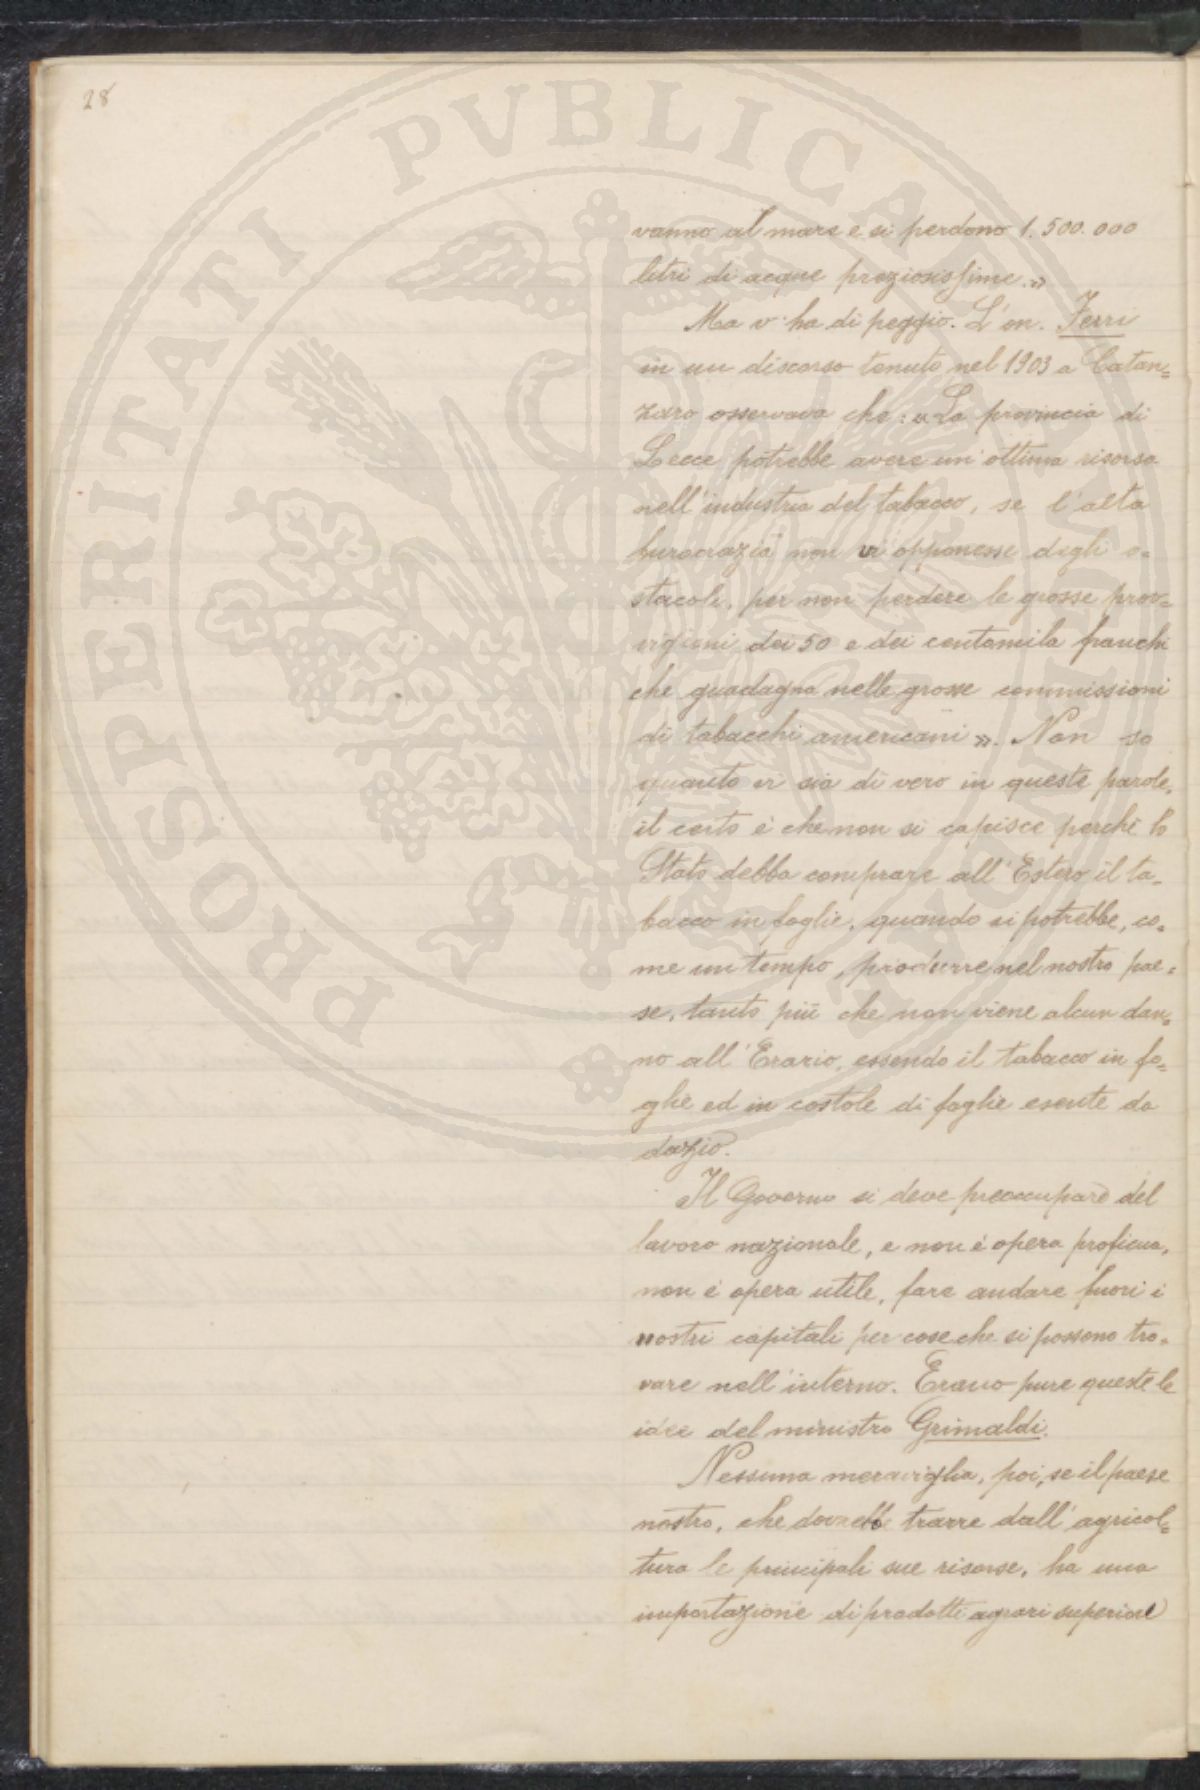 28
PROSPERITATI PVBLICAE AVGENDAE
vanno al mare e si perdono 1.500.000
litri di acque preziosissime.»
Ma v'ha di peggio. L'on. Ferri
in un discorso tenuto nel 1903 a Catan=
zaro osservava che: «La provincia di
Lecce potrebbe avere un'ottima risorsa
nell'industria del tabacco, se l'alta
burocrazia non vi opponesse degli o=
stacoli, per non perdere le grosse prov=
vigioni dei 50 e dei centomila franchi
che guadagna nelle grosse commissioni
di tabacchi americani». Non so
quanto vi sia di vero in queste parole,
il certo è che non si capisce perchè lo
Stato debba comprare all'Estero il ta=
bacco in foglie, quando si potrebbe, co=
me un tempo, produrre nel nostro pae=
se, tanto più che non viene alcun dan=
no all'Erario, essendo il tabacco in fo=
glie ed in costole di foglie esente da
dazio.
Il Governo si deve preoccupare del
lavoro nazionale, e non è opera proficua,
non è opera utile, fare andare fuori i
nostri capitali per cose che si possono tro=
vare nell'interno. Erano pure queste le
idee del ministro Grimaldi.
Nessuna meraviglia, poi, se il paese
nostro, che dovrebbe trarre dall'agricol=
tura le principali sue risorse, ha una
importazione di prodotti agrari superiore